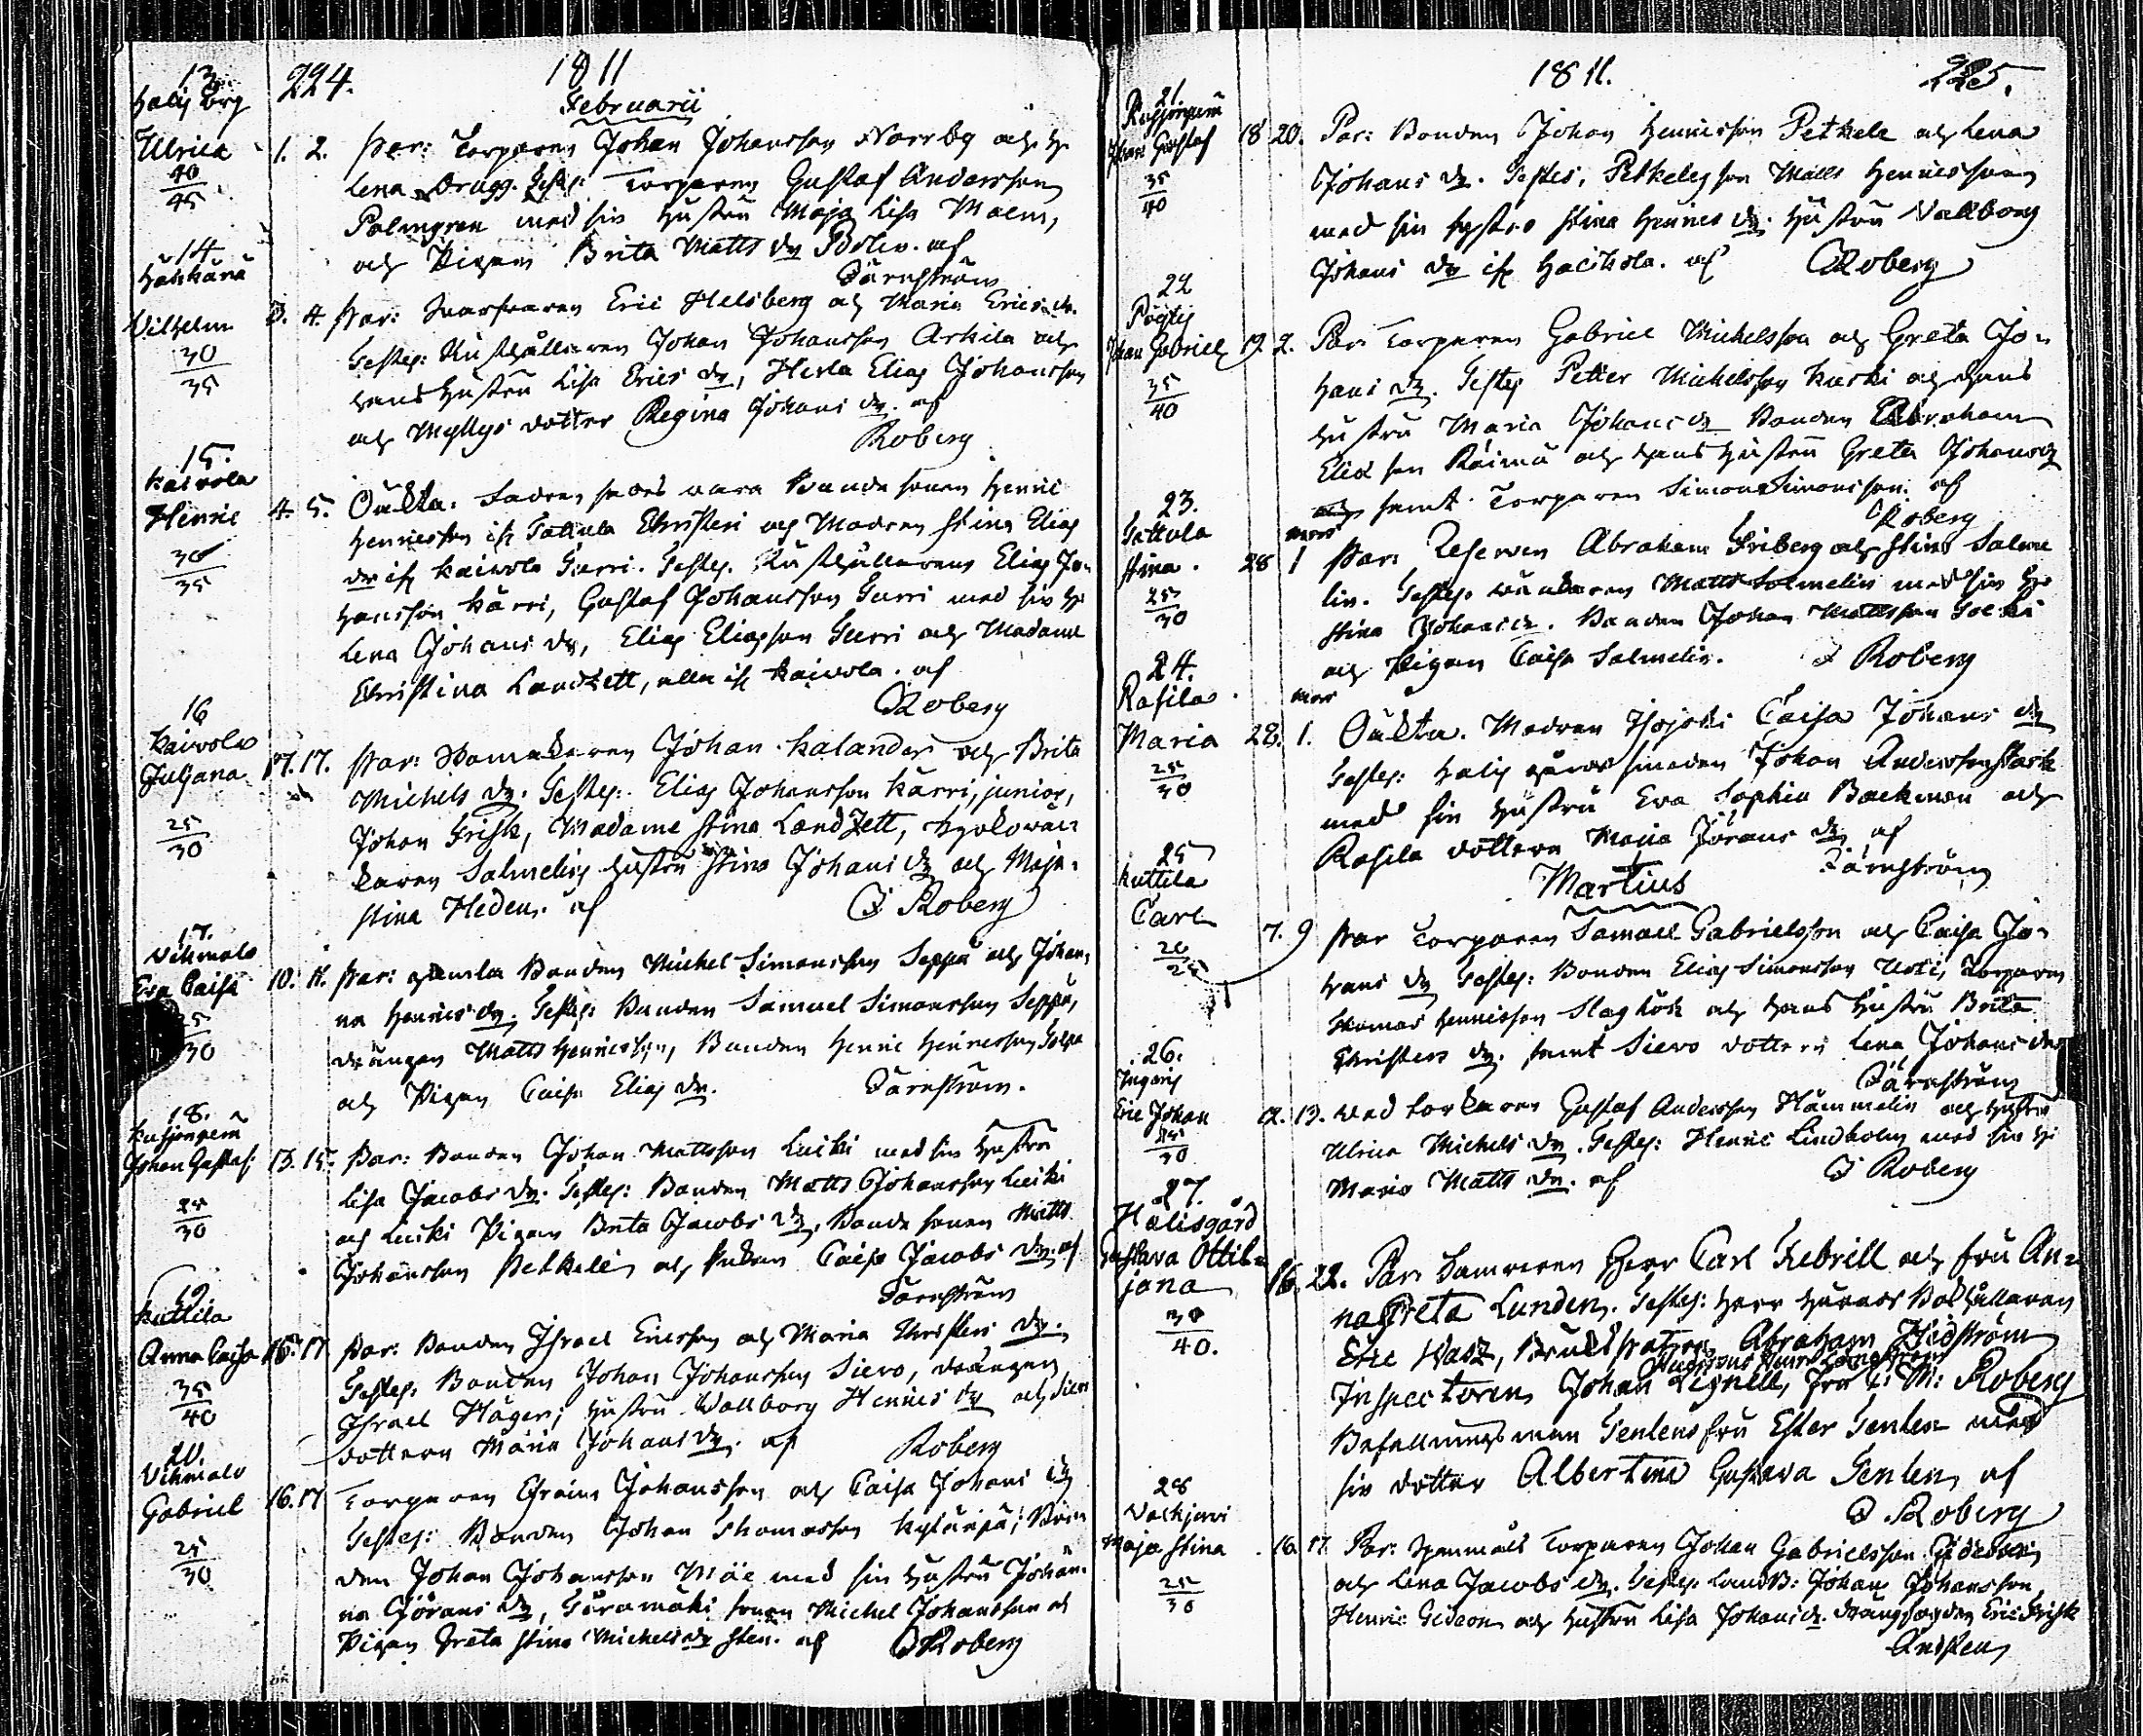 224.
1811
Februarii
13.
Halis Berg
Ulrica 1. 2. Par: Torparen Johan Johansson Norrbg och h.
40/45
Lena Drugg. Testes: Torparen Gustaf Andersson
Palmgren med sin hustru Maja Lisa Malm,
och Pigan Brita Matts dr Bolin. af
Därnström
14.
Häntkälä
Vilhelm 3. 4. Par: Eric Helsberg och Maria Erics dr.
30/35
Testes: Rusthållaren Johan Johansson Arkila och
hans hustru Lisa Erics dr, Elias Johansson
och Myllys dotter Regina Johans dr. af
Roberg
15.
Kaivola
Henric 4. 5. Oäkta. Fadren vara Bonde sonen Henric
30/35
Henricsson if Tattula Christeri och Modren Stina Elias
dr if Kaivola Gierri. Testes. Rusthållarens Elias Jo-
hansson Kärri, Gustaf Johansson Gierri med sin h.
Lena Johans dr, Elias Eliasson Gierri och Madame
Christina Landzett, alla if Kaivola. af
Roberg
16
Kaivola
Juljana 17. 17. Par: Johan Kalander och Brita
25/30
Michels dr. Testes: Elias Johansson Kärri, junior,
Johan Frisk, Madame Stina Landzett,
Salmelins hustru Stina Johans dr och Maja
Stina Heden. af
J Roberg
17.
Vehmalo
Eva Caisa 10. 11. Par: gamla Bonden Michel Simonsson Seppä och Johan-
25/30
na Henrics dr. Testes: Bonden Samuel Simonsson Seppä,
drängen Matts Henricsson, Bonden Henric Henricsson
och Pigan Caisa Elias dr. Därnström.
18.
Kusjenpelä
Johan Gustaf 13. 15. Par: Bonden Johan Mattsson Luiki med sin hustru
25/30
Lisa Jacobs dr. Testes: Bonden Matts Johansson Luiki
och Luiki Pigan Brita Jacobs dr, Bonde sonen Matts
Johansson Petkele och Caisa Jacobs dr. af
Därnström
19.
Kuttila
Anna Caisa 16. 17 Par: Bonden Israel Ericsson och Maria Christers dr.
35/40
Testes: Bonden Johan Johansson Sievo, drängen
Israel Häger, hustru Wallborg Henrics dr och Sievo
dottern Maria Johans dr. af Roberg
20.
Vehmalo
Gabriel 16. 17 Torparen Efraim Johansson och Caisa Johans dr
25/30
Testes: Bonden Johan Thomasson Kylänpä; Bon-
den Johan Johansson Mäe med sin hustru Johan-
na Görans dr, Göramäki sonen Michel Johansson och
Pigan Greta Stina Michels dr Sten. af J Roberg
1811. 225.
21.
Johan Gustaf 18 20. Par: Bonden Johan Henricsson Petkele och Lena
35/40
Johans dr. Testes, Petkeles son Matts Henricsson
med sin syster Stina Henrics dr. hustru Wallborg
Johans dr if Haitsola. af Roberg
22
Pöytis
Johan Gabriel 19. 2. Par Torparen Gabriel Michelsson och Greta Jo-
35/40
hans dr. Testes Petter Michelsson Kurki och hans
hustru Maria Johans dr Bonden Abraham
Elias son Räimä och hans hustru Greta Johans dr
samt Torparen Simon Simonsson. af
Roberg
23.
Tattula
mars
Stina. 28 1 Par: Reserven Abraham Friberg och Stina Salme
25/30
lin. Testes Matts Salmelin med sin h.
Stina Johans dr. Bonden Johan Mattsson
och Pigan Caisa Salmelin. J Roberg
24.
Rasila
mars
Maria 28. 1. Oäkta. Modren Caisa Johans dr
25/30
Testes: Halis gårds smeden Johan Andersson Stark
med sin hustru Eva Sophia Backman och
Rasila dottern Maria Görans dr af
Därnström
Martius
25
Kuttila
Carl 7. 9 Par Torparen Samuel Gabrielsson och Caisa Jo-
20/25
hans dr Testes: Bonden Elias Simonsson Uoti, Torparen
Thomas Henricsson Slaghök och hans hustru Brita
Christers dr. samt Sievo dottern Lena Johans dr
Därnström
26.
Ingois
Eric Johan 12. 13. Gustaf Andersson Hämmelin och hustru
25/30
Ulrica Michels dr. Testes: Henric Lindholm med sin h.
Maria Matts dr. af J Roberg
27.
Halisgård
Gustava Ottil-
jana 16. 22. Par: Herr Carl Febrill och fru An-
30/40.
na Greta Lunden. Testes: Herr Bokhållaren
Eric Wasz, Bruks Patron Abraham Hedström
Inspectoren Johan Lignell, fru C: M: Roberg
Befallningsman Genlens fru Ester Genlen med
sin dotter Albertina Gustava Genlen, af
J Roberg
28
Vackjervi
Maja Stina 16. 17. Par: Torparen Johan Gabrielsson Gideon
25/30
och Lena Jacobs dr. Testes: Landtb: Johan Johansson,
Henric Gideon och hustru Lisa Johans dr. Eric Frisk